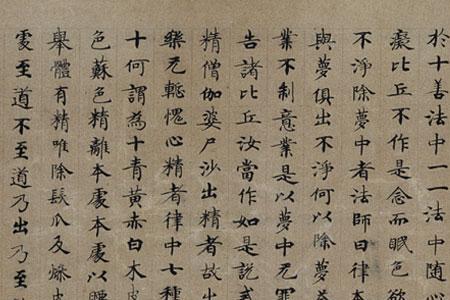 於十善法中一一法中随心
癡比丘不作是念而眠色欲
不淨除夢中者法師曰律本
與夢俱出不淨何以除夢答
業不制意業是以夢中无罪
告諸比丘汝當作如是説戒
精僧伽婆尸沙出精者故出
樂无慙愧心精者律中七種
十何謂為十青黃赤白木皮
色蘇色精離本處本處以腰
舉體有精唯除髮爪及燥皮
處至道不至道乃出乃至